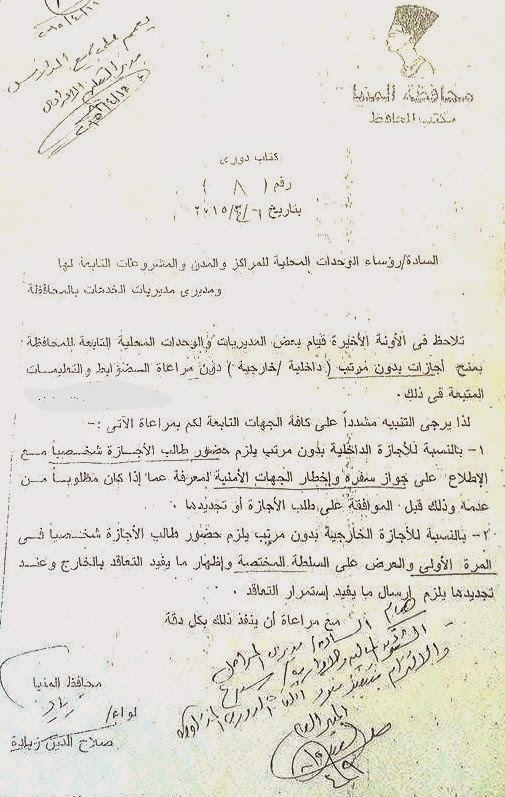 يعمم على جميع المدارس
محافظة المنيا
مكتب المحافظ
كتاب دورى
رقم ( ٨ )
بتاريخ ٦ /٣/ ٢٠١٥
السادة/رؤساء الوحدات المحلية للمراكز والمدن والمشروعات التابعة لها
ومديرى مديريات الخدمات بالمحافظة
تلاحظ فى الأونة الأخيرة قيام بعض المديريات والوحدات المحلية التابعة للمحافظة
بمنح أجازات بدون مرتب ( داخلية /خارجية ) دون مراعاة الضوابط والتعليمات
المتبعة فى ذلك .
لذا يرجى التنبيه مشدداً على كافة الجهات التابعة لكم بمراعاة الآتى :-
١- بالنسبة للأجازة الداخلية بدون مرتب يلزم حضور طالب الأجازة شخصياً مع
الإطلاع على جواز سفره وإخطار الجهات الأمنية لمعرفة عما إذا كان مطلوباً من
عدمه وذلك قبل الموافقة على طلب الأجازة أو تجديدها .
٢- بالنسبة للأجازة الخارجية بدون مرتب يلزم حضور طالب الأجازة شخصياً فى
المرة الأولى والعرض على السلطة المختصة وإظهار ما يفيد التعاقد بالخارج وعند
تجديدها يلزم إرسال ما يفيد إستمرار التعاقد .
مع مراعاة أن ينفذ ذلك بكل دقة
هام
السادة / مديرى المراحل
محافظ المنيا
لواء/
صلاح الدين زيادة
المدير العام